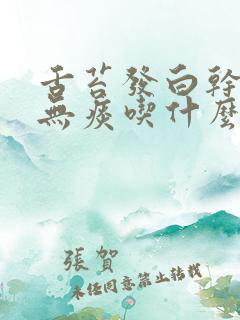 舌苔發白幹
無痰喫什麼
張賀
未經同意禁止轉載